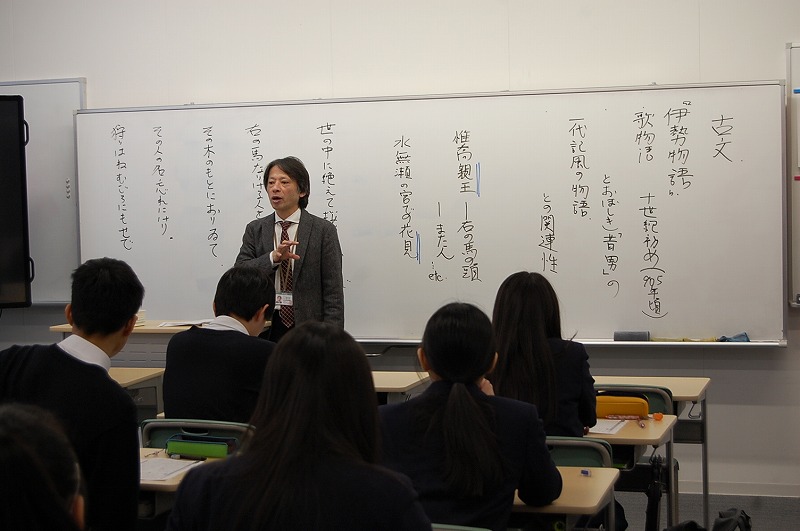 古文
『伊勢物語』
歌物語 十世紀初め(905年頃)
とおぼしき「昔男」の
一代記風の物語
との関連性
惟喬親王 ー 右の馬の頭
ーまた人 etc
水無瀬の宮での花見
世の中に絶えて桜
右の馬なりける
その木のもとにおりゐて
その人の名忘れにけり。
狩りはねむごろにもせで